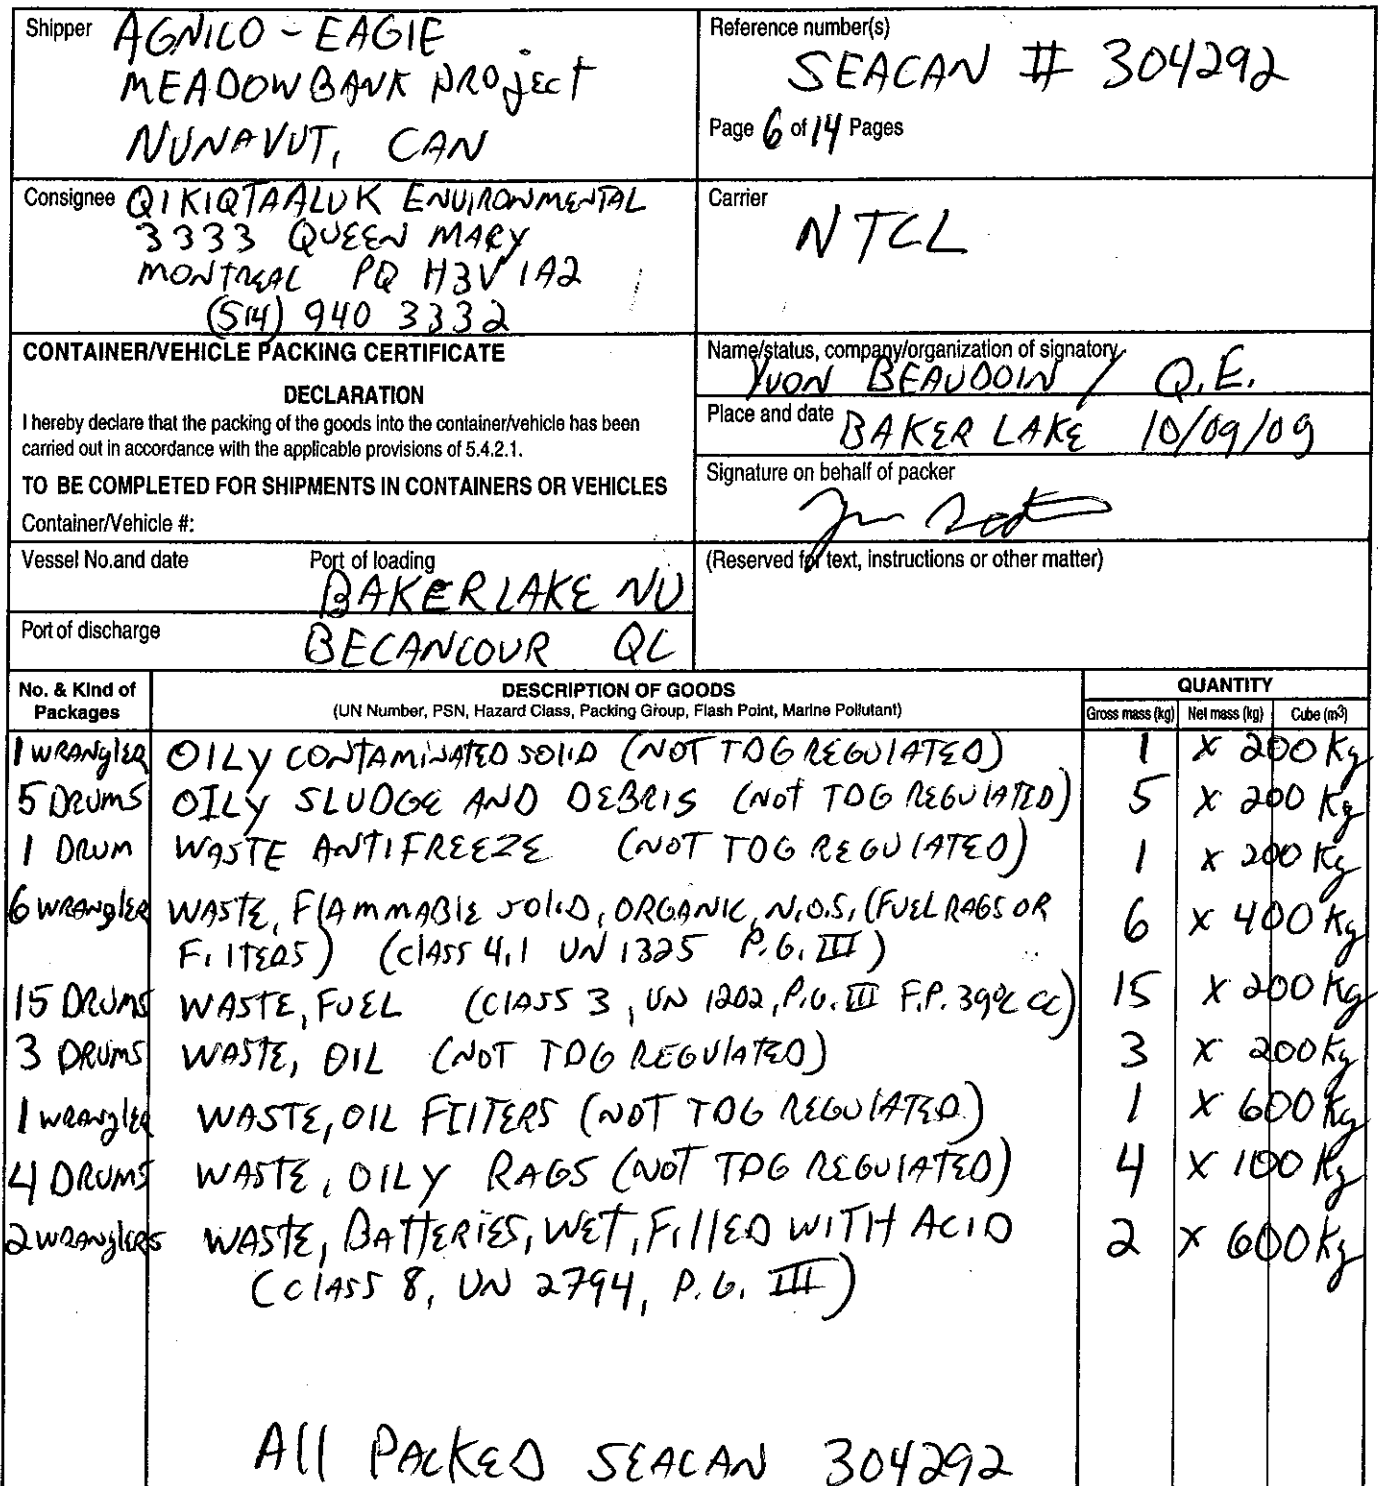 Shipper AGNICO - EAGlE
MEADOWBANK PROJECT
NUNAVUT, CAN
Reference number(s)
SEACAN # 304292
Page 6 of 14 Pages
Consignee QIKIQTAALUK ENVIRONMENTAL
3333 QUEEN MARY
MONTREAL PQ H3V 1A2
(514) 940 3332
Carrier
NTCL
CONTAINER/VEHICLE PACKING CERTIFICATE
DECLARATION
I hereby declare that the packing of the goods into the container/vehicle has been
carried out in accordance with the applicable provisions of 5.4.2.1.
TO BE COMPLETED FOR SHIPMENTS IN CONTAINERS OR VEHICLES
Container/Vehicle #:
Name/status, company/organization of signatory
YVON BEAUDOIN / Q.E.
Place and date BAKER LAKE 10/09/09
Signature on behalf of packer
Vessel No.and date
Port of loading
BAKER LAKE NU
Port of discharge
BECANCOUR QC
(Reserved for text, instructions or other matter)
No. & Kind of Packages
DESCRIPTION OF GOODS
(UN Number, PSN, Hazard Class, Packing Group, Flash Point, Marine Pollutant)
QUANTITY
Gross mass (kg) Net mass (kg) Cube (m3)
1 WRANglER OILY CONTAMINATED SOLID (NOT TDG REGULATED) 1 X 200 Kg
5 DRUMS OILY SLUDGE AND DEBRIS (NOT TDG REGULATED) 5 X 200 Kg
1 DRUM WASTE ANTIFREEZE (NOT TDG REGULATED) 1 X 200 Kg
6 WRANglER WASTE, FlAMMABlE SOlID, ORGANIC, N.O.S, (FUEL RAGS OR 6 X 400 Kg
FilTERS) (ClASS 4.1 UN 1325 P.G. III)
15 DRUMS WASTE, FUEL (ClASS 3, UN 1202, P.G. III F.P. 39°C CC) 15 X 200 Kg
3 DRUMS WASTE, OIL (NOT TDG REGULATED) 3 X 200 Kg
1 WRANglER WASTE, OIL FIlTERS (NOT TDG REGULATED) 1 X 600 Kg
4 DRUMS WASTE, OILY RAGS (NOT TDG REGULATED) 4 X 100 Kg
2 WRANglERS WASTE, BATTERIES, WET, FillED WITH ACID 2 X 600 Kg
(ClASS 8, UN 2794, P.G. III)
All PACKED SEACAN 304292